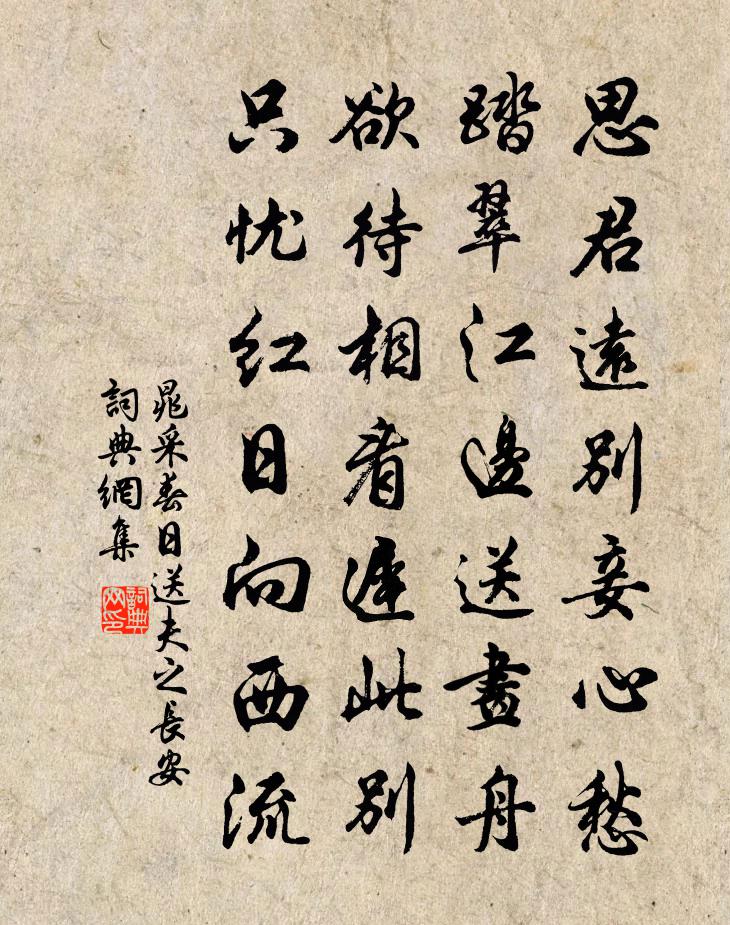 思君遠別妾心愁
踏翠江邊送畫舟
欲待相看遲此別
只忧紅日向西流
晁采春日送夫之長安
詞典網集
詞典网印